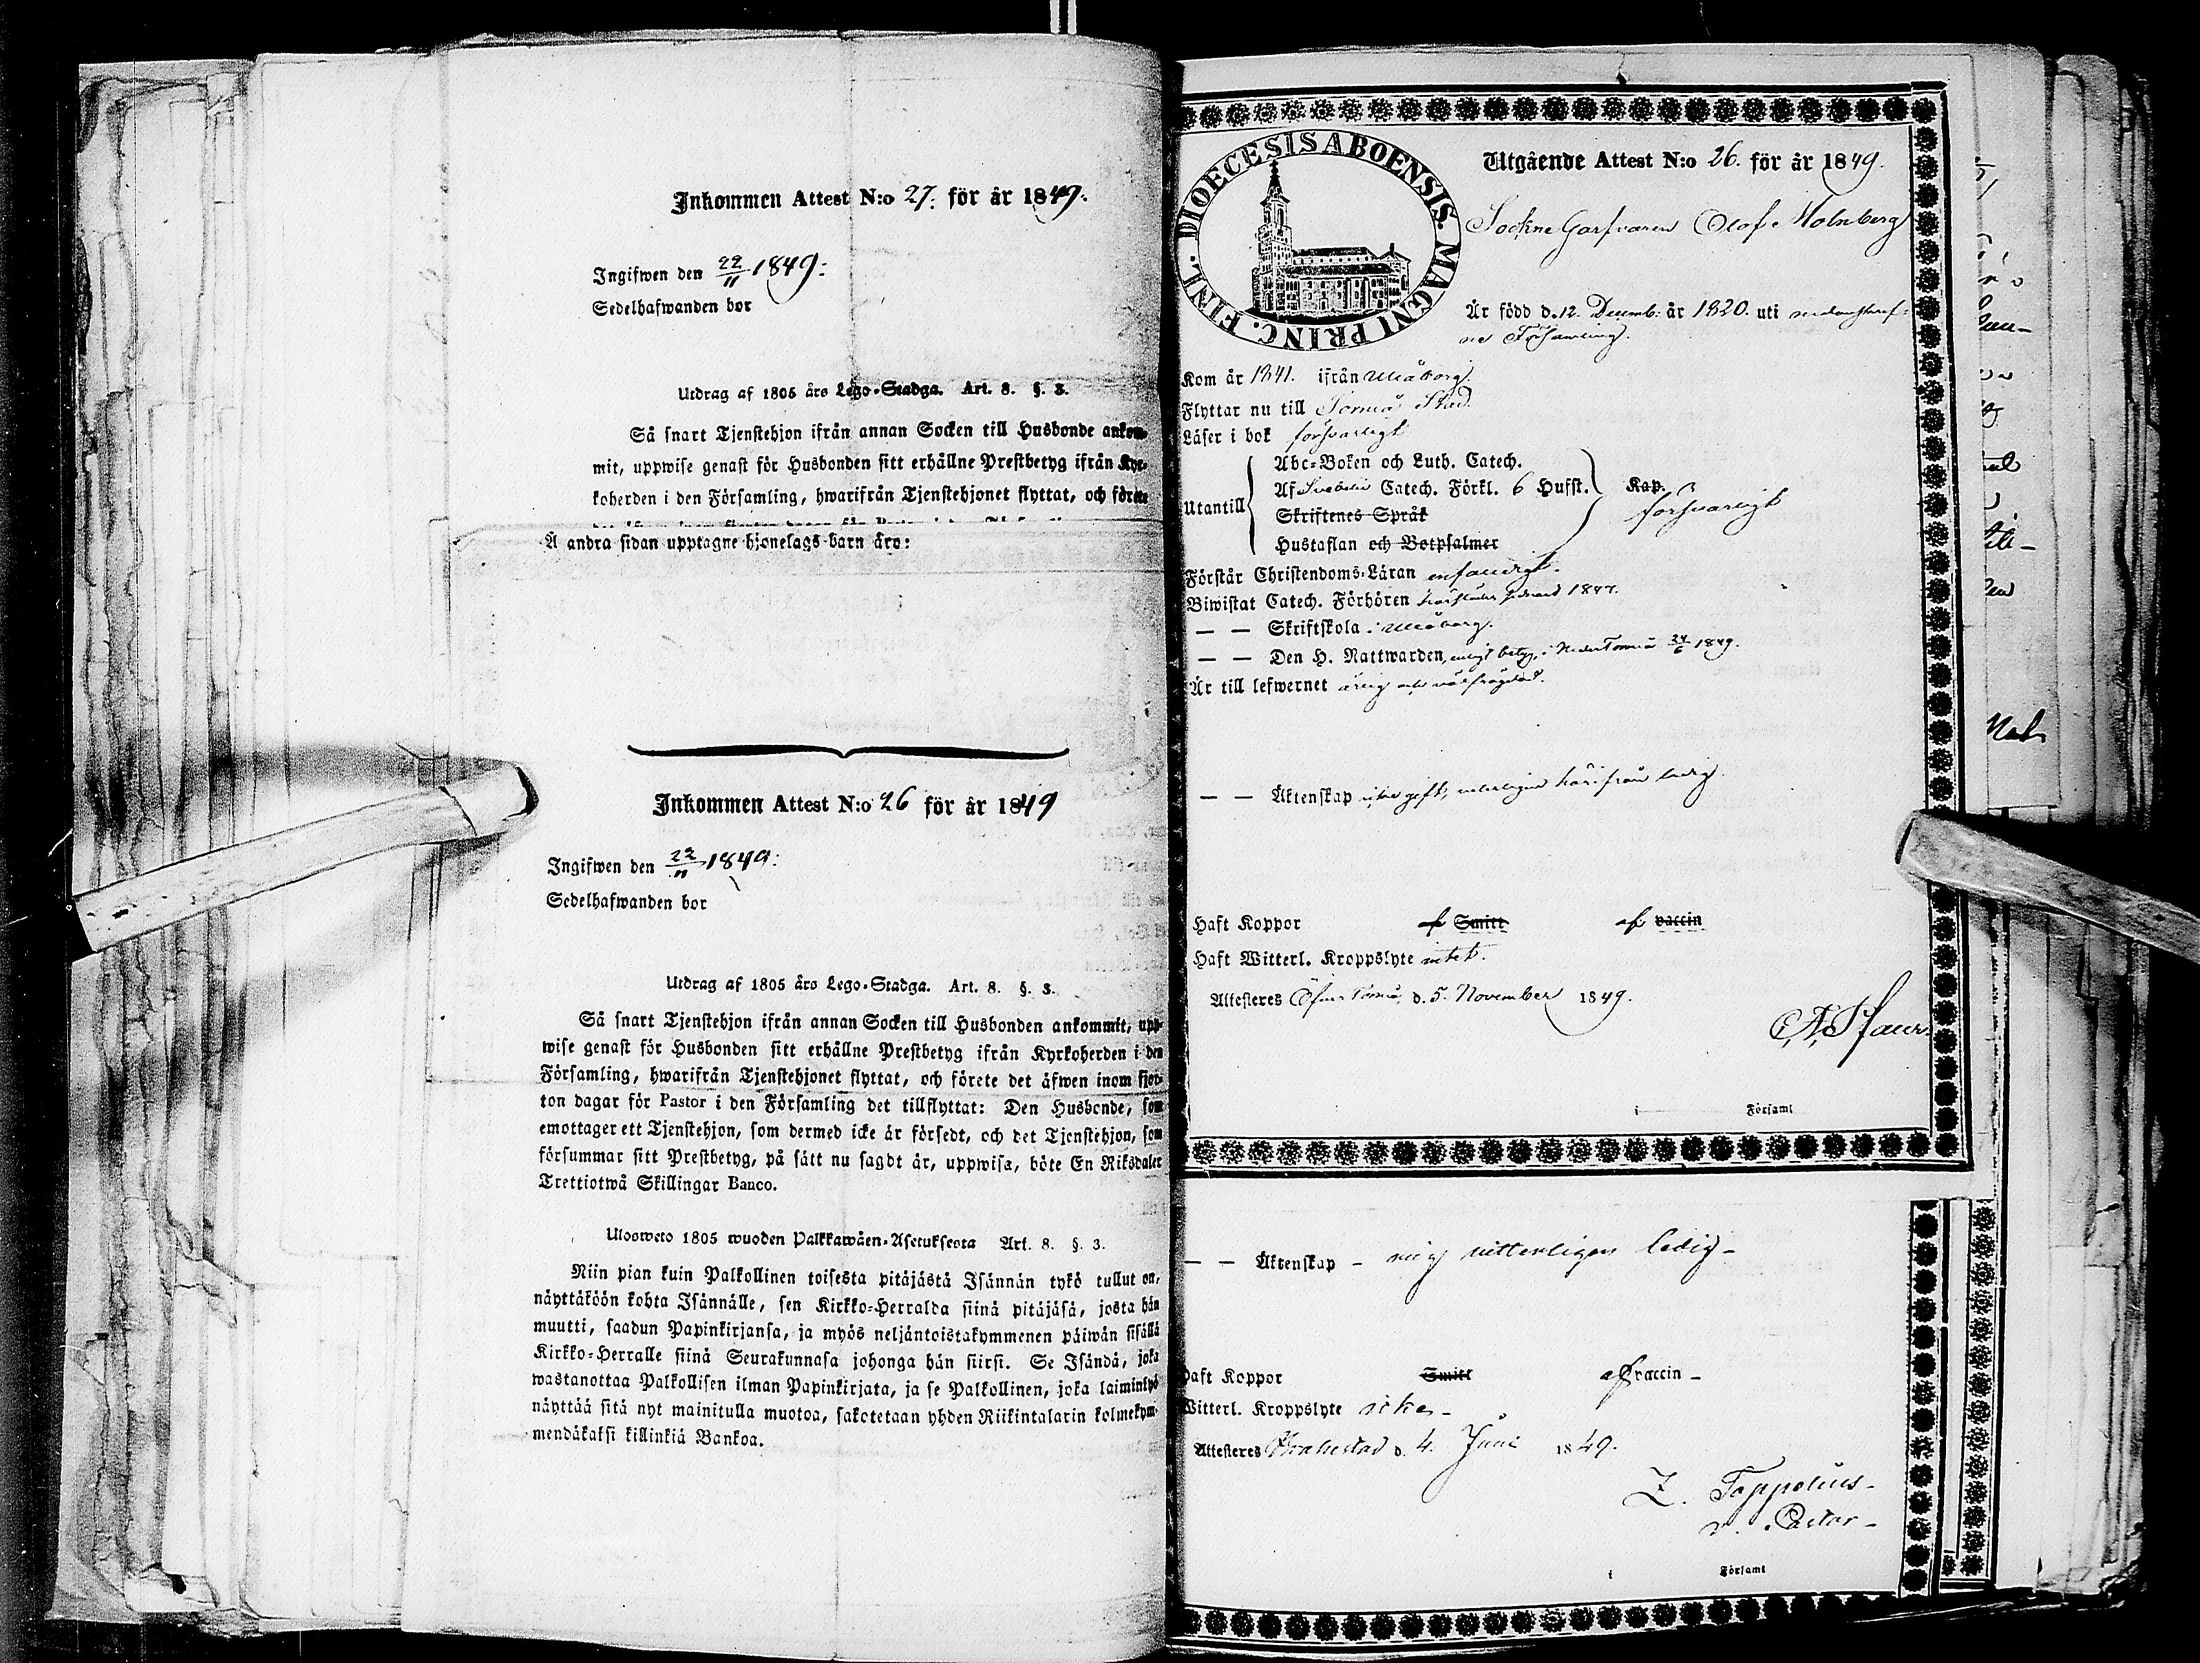 Inkommen Attest N:o 27. för år 1849.
Ingifwen den 22/11 1849:
Sedelhafwanden bor
Utdrag af 1805 års Lego-Stadga. Art. 8. §. 3.
Så snart Tjenstehjon ifrån annan Socken till Husbonde ankom-
mit, uppwise genast för Husbonden sitt erhållne Prestbetyg ifrån Kyr-
koherden i den Församling, hwarifrån Tjenstehjonet flyttat, och förete
Å andra sidan upptagne hjonelags barn äro:
Inkommen Attest N:o 26 för år 1849
Ingifwen den 22/11 1849:
Sedelhafwanden bor
Utdrag af 1805 års Lego-Stadga. Art. 8. §. 3.
Så snart Tjenstehjon ifrån annan Socken till Husbonden ankommit, upp-
wise genast för Husbonden sitt erhållne Prestbetyg ifrån Kyrkoherden i den
Församling, hwarifrån Tjenstehjonet flyttat, och förete det äfwen inom fjor-
ton dagar för Pastor i den Församling det tillflyttat: Den Husbonde, som
emottager ett Tjenstehjon, som dermed icke är försedt, och det Tjenstehjon, som
försummar sitt Prestbetyg, på sätt nu sagdt är, uppwisa, böte En Riksdaler
Trettiotwå Skillingar Banco.
Ulosweto 1805 wuoden Palkkawäen-Asetuksesta Art. 8. §. 3.
Niin pian kuin Palkollinen toisesta pitäjästä Isännän tykö tullut on,
näyttäköön kohta Isännälle, sen Kirkko-Herralda siinä pitäjäsä, josta hän
muutti, saadun Papinkirjansa, ja myös neljäntoistakymmenen päiwän sisällä
Kirkko-Herralle siinä Seurakunnasa johonga hän siirsi. Se Isändä, joka
wastanottaa Palkollisen ilman Papinkirjata, ja se Palkollinen, joka laiminlyö
näyttää sitä nyt mainitulla muotoa, sakotetaan yhden Riikintalarin kolmekym-
mendäkaksi killinkiä Bankoa.
DIOECESIS ABOENSIS. MAGNI PRINC. FINL.
Utgående Attest N:o 26. för år 1849.
Sockne Garfvaren Olof Holmberg
Är född d. 12. Decemb: år 1820. uti nedanskref-
ne Församling.
Kom år 1841. ifrån Uleåborg.
Flyttar nu till Torneå Stad.
Läser i bok försvarligt
Utantill
Abc-Boken och Luth. Catech.
Af Svebelii Catech. Förkl. 6 Hufst.
Skriftenes Språk
Hustaflan och Botpsalmer
Kap.
försvarligt
Förstår Christendoms-Läran enfaldigt.
Biwistat Catech. Förhören 1847.
— — Skriftskola i Uleåborg.
— — Den H. Nattwarden, enligt betyg, i Neder Torneå 24/6 1849.
Är till lefwernet ärlig och välfrägdad.
— — Äktenskap icke gift, veterligen härifrån ledig.
Haft Koppor af Smitt af vaccin
Haft Witterl. Kroppslyte intet.
Attesteres Öfver Torneå, d. 5. November 1849.
i Församl
— — Äktenskap – mig vitterligen ledig –
Haft Koppor Smitt af vaccin –
Witterl. Kroppslyte icke –
Attesteres Brahestad d. 4. Juni 1849.
Z. Toppelius –
v. Pastor –
i Församl